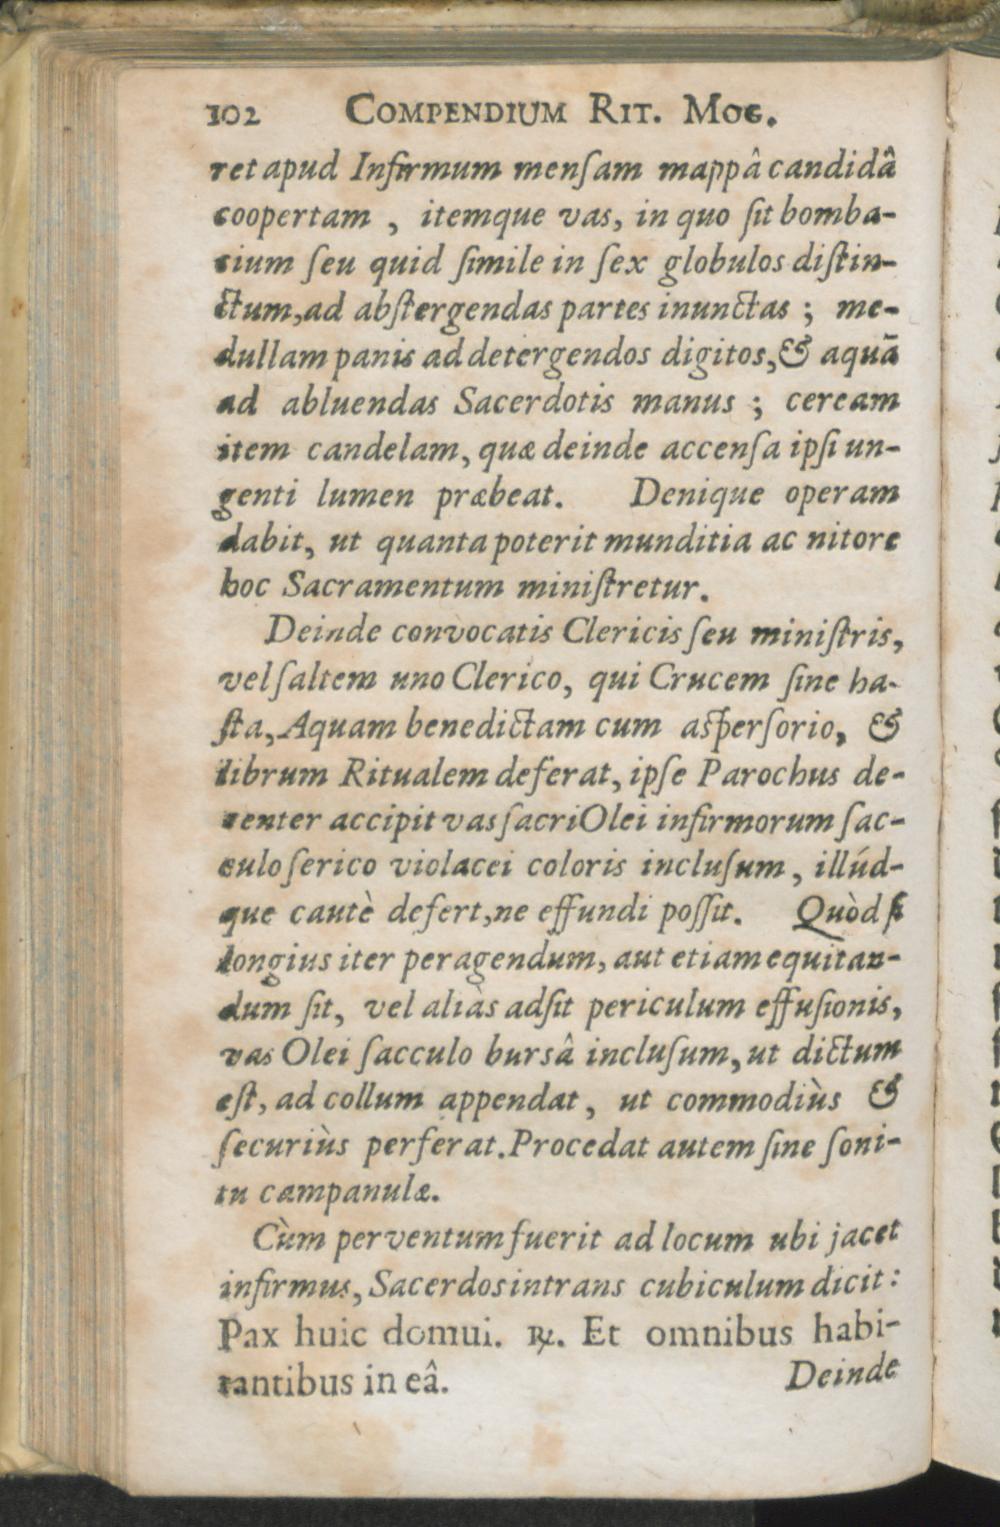 102 COMPENDIUM RIT. MOG.
ret apud Infirmum menſam mappâ candidâ
coopertam , itemque vas, in quo ſit bomba-
cium ſeu quid ſimile in ſex globulos diſtin-
ctum, ad abſtergendas partes inunctas ; me-
dullam panis ad detergendos digitos, & aquā
ad abluendas Sacerdotis manus ; ceream
item candelam, quæ deinde accenſa ipſi un-
genti lumen præbeat. Denique operam
dabit, ut quanta poterit munditia ac nitore
hoc Sacramentum miniſtretur.
Deinde convocatis Clericis ſeu miniſtris,
vel ſaltem uno Clerico, qui Crucem ſine ha-
ſta, Aquam benedictam cum aſperſorio, &
librum Ritualem deferat, ipſe Parochus de-
center accipit vas ſacri Olei infirmorum ſac-
culo ſerico violacei coloris incluſum, illúd-
que cautè defert, ne effundi poſſit. Quòd ſi
longius iter peragendum, aut etiam equitan-
dum ſit, vel aliàs adſit periculum effuſionis,
vas Olei ſacculo bursâ incluſum, ut dictum
eſt, ad collum appendat, ut commodiùs &
ſecuriùs perferat. Procedat autem ſine ſoni-
tu campanulæ.
Cùm perventum fuerit ad locum ubi jacet
infirmus, Sacerdos intrans cubiculum dicit:
Pax huic domui. ℞. Et omnibus habi-
tantibus in eâ. Deinde